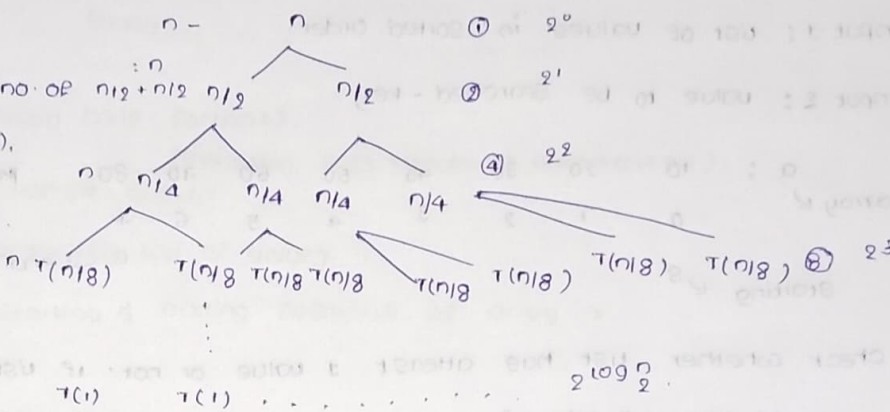 n - n ① 2⁰
: n
no. of n/2 + n/2 n/2 n/2 ② 2¹
).
n n/4 n/4 n/4 n/4 ④ 2²
n T(n/8) T(n/8 T(n/8) T(n/8 T(n/8) T(n/8) T(n/8) T(n/8) ⑧ 2³
T(1) T(1) . . . . . . . . 2^log₂n